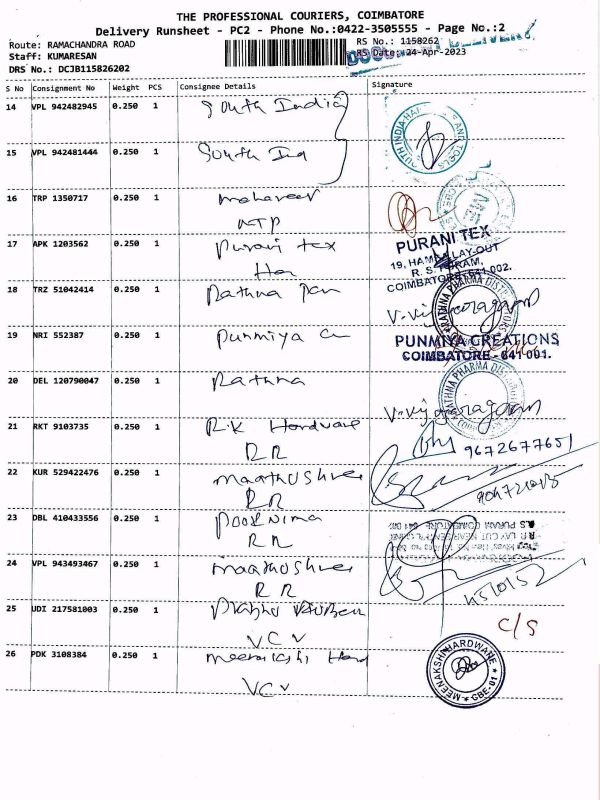 THE PROFESSIONAL COURIERS, COIMBATORE
Delivery Runsheet - PC2 - Phone No.:0422-3505555 - Page No.:2
Route: RAMACHANDRA ROAD
RS No.: 1158262
Staff: KUMARESAN
RS Date: 24-Apr-2023
DRS No.: DCJB115826202
S No Consignment No Weight PCS Consignee Details Signature
14 VPL 942482945 0.250 1 South India
15 VPL 942481444 0.250 1 South Ind
16 TRP 1350717 0.250 1 mahaveer
NTP
17 APK 1203562 0.250 1 Purani tex
PURANI TEX
COIMBATORE - 641 002.
18 TRZ 51042414 0.250 1 Rathna
19 NRI 552387 0.250 1 Punmiya
PUNMIYA CREATIONS
COIMBATORE - 641 001.
20 DEL 120790047 0.250 1 Rathna
RATHNA PHARMA
21 RKT 9103735 0.250 1 R.K Hardware
RR
9672677651
22 KUR 529422476 0.250 1 maathushree
RR
23 DBL 410433556 0.250 1 Poornima
RR
24 VPL 943493467 0.250 1 maathushree
RR
25 UDI 217581003 0.250 1 Prabhu
VCV
C/S
26 PDK 3108384 0.250 1 meenakshi Hard
VCV
MEENAKSHI HARDWARE
CBE-01